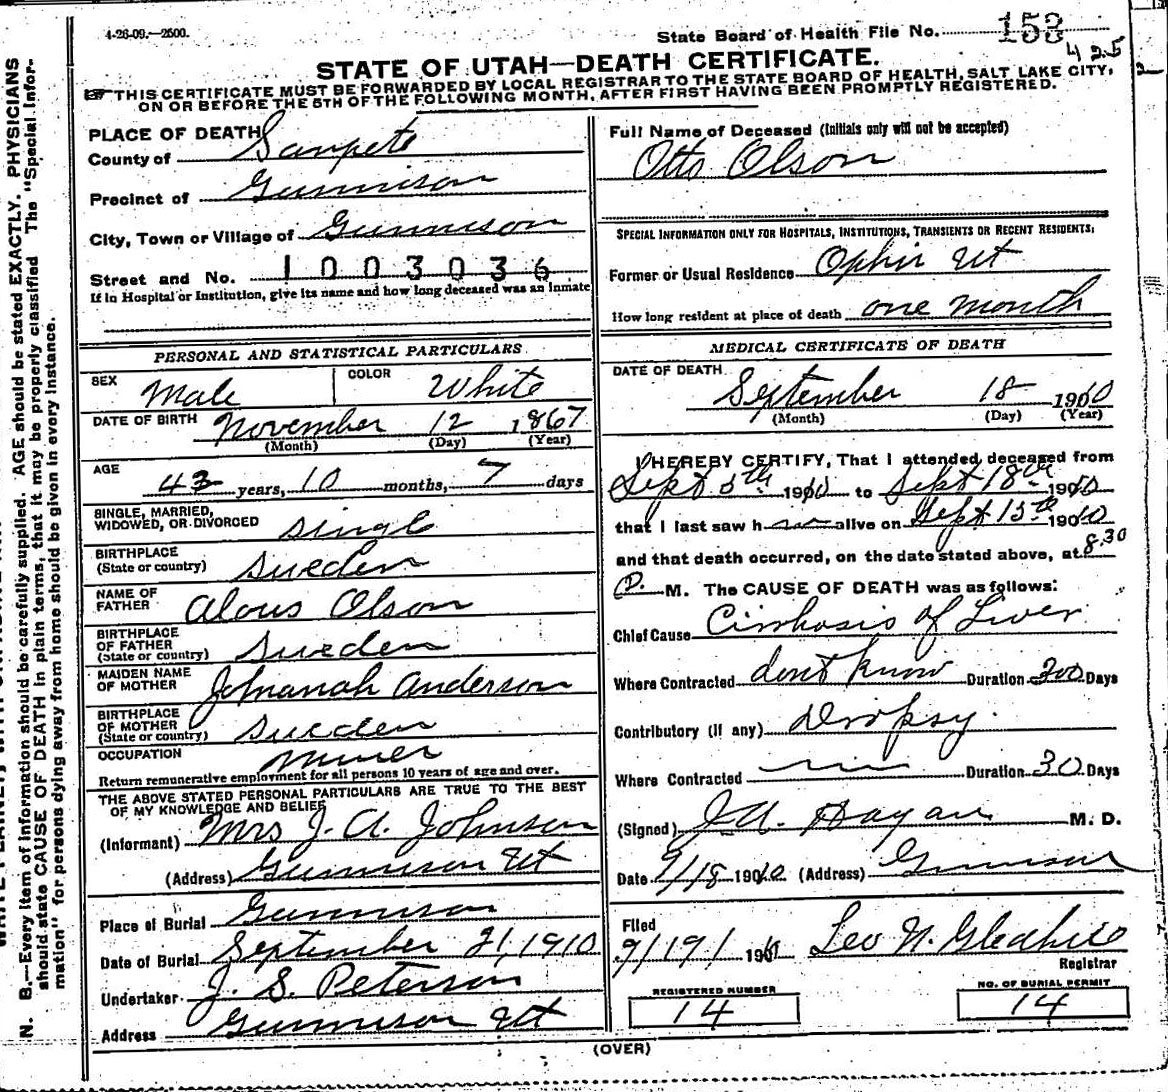 4-26-09.—2500.
State Board of Health File No. 153
425
STATE OF UTAH—DEATH CERTIFICATE.
THIS CERTIFICATE MUST BE FORWARDED BY LOCAL REGISTRAR TO THE STATE BOARD OF HEALTH, SALT LAKE CITY,
ON OR BEFORE THE 5TH OF THE FOLLOWING MONTH, AFTER FIRST HAVING BEEN PROMPTLY REGISTERED.
PLACE OF DEATH
County of Sanpete
Precinct of Gunnison
City, Town or Village of Gunnison
Street and No. 1003036
If in Hospital or Institution, give its name and how long deceased was an inmate
PERSONAL AND STATISTICAL PARTICULARS
SEX Male COLOR White
DATE OF BIRTH November 12 1867
(Month) (Day) (Year)
AGE 43 years, 10 months, 7 days
SINGLE, MARRIED,
WIDOWED, OR DIVORCED Single
BIRTHPLACE
(State or country) Sweden
NAME OF
FATHER Olson
BIRTHPLACE
OF FATHER
(State or country) Sweden
MAIDEN NAME
OF MOTHER Johnanah Anderson
BIRTHPLACE
OF MOTHER
(State or country) Sweden
OCCUPATION Miner
Return remunerative employment for all persons 10 years of age and over.
THE ABOVE STATED PERSONAL PARTICULARS ARE TRUE TO THE BEST
OF MY KNOWLEDGE AND BELIEF
(Informant) Mrs J. A. Johnson
(Address) Gunnison Ut
Place of Burial Gunnison
Date of Burial September 21, 1910
Undertaker J. S. Peterson
Address Gunnison Ut
Full Name of Deceased (Initials only will not be accepted)
Otto Olson
SPECIAL INFORMATION ONLY FOR HOSPITALS, INSTITUTIONS, TRANSIENTS OR RECENT RESIDENTS:
Former or Usual Residence Ophir Ut
How long resident at place of death one month
MEDICAL CERTIFICATE OF DEATH
DATE OF DEATH
September 18 1910
(Month) (Day) (Year)
I HEREBY CERTIFY, That I attended deceased from
Sept 5th 1910 to Sept 18th 1910
that I last saw h alive on Sept 15th 1910
and that death occurred, on the date stated above, at 8.30
P. M. The CAUSE OF DEATH was as follows:
Chief Cause Cirrhosis of Liver
Where Contracted dont know Duration 300 Days
Contributory (if any) Dropsy.
Where Contracted Duration 30 Days
(Signed) J.A. Hagan M. D.
Date 9/18 1910 (Address) Gunnison
Filed
9/19/ 1910 Leo N. Gledhill
Registrar
REGISTERED NUMBER
14
NO. OF BURIAL PERMIT
14
(OVER)
N. B.—Every item of information should be carefully supplied. AGE should be stated EXACTLY. PHYSICIANS
should state CAUSE OF DEATH in plain terms, that it may be properly classified. The "Special Infor-
mation" for persons dying away from home should be given in every instance.